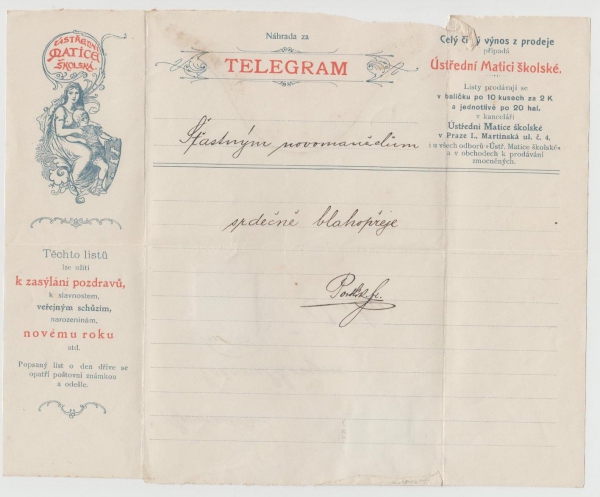 ÚSTŘEDNÍ
MATICE
ŠKOLSKÁ
Těchto listů
lze užíti
k zasýlání pozdravů,
k slavnostem,
veřejným schůzím,
narozeninám,
novému roku
atd.
Popsaný list o den dříve se
opatří poštovní známkou
a odešle.
Náhrada za
TELEGRAM
Šťastným novomanželům
srdečně blahopřeje
Celý čistý výnos z prodeje
připadá
Ústřední Matici školské.
Listy prodávají se
v balíčku po 10 kusech za 2 K
a jednotlivě po 20 hal.
v kanceláři
Ústřední Matice školské
v Praze I., Martinská ul. č. 4,
i u všech odborů »Ústř. Matice školské«
a v obchodech k prodávání
zmocněných.